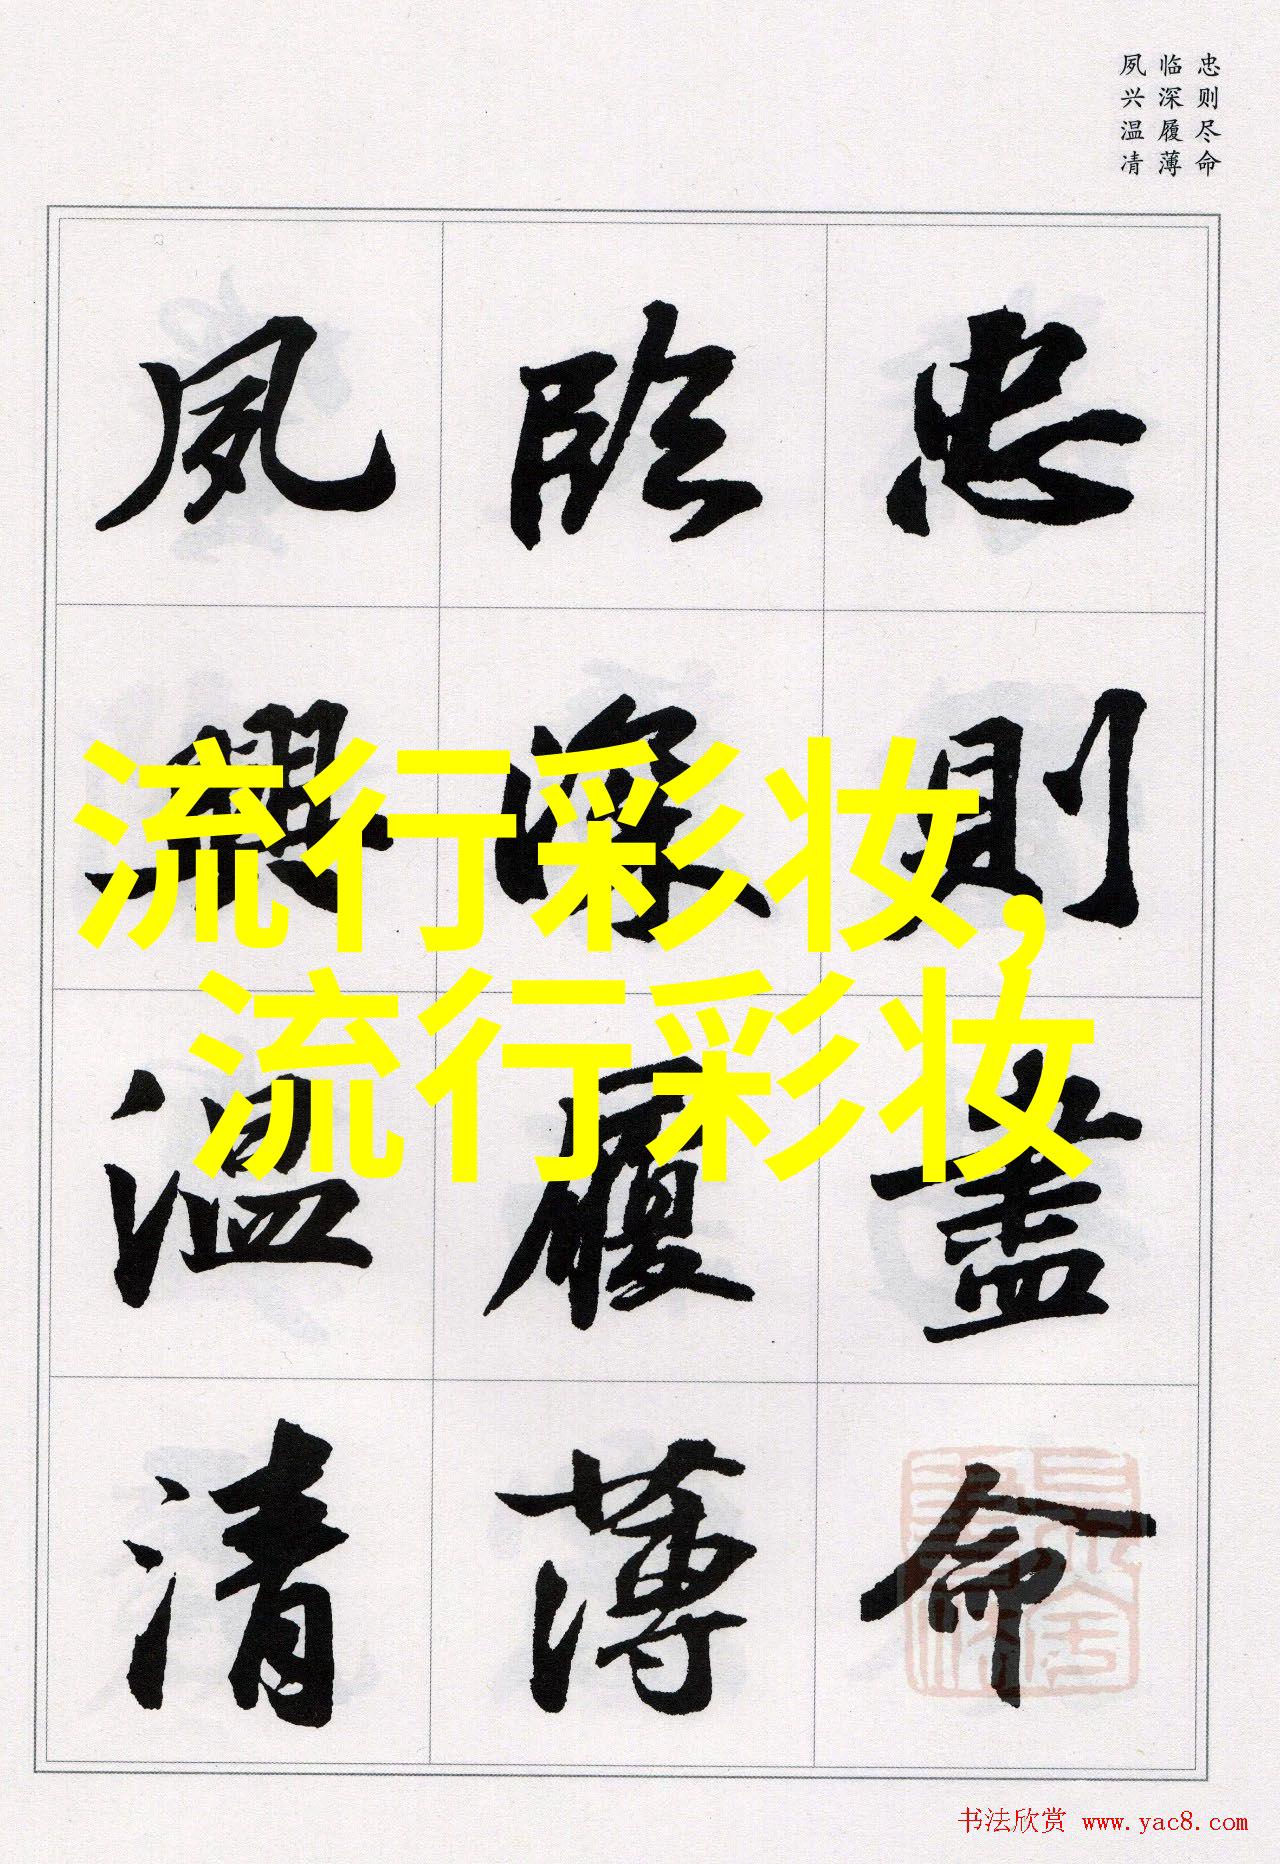 忠则尽命
临深履薄
夙兴温凊
忠則盡命
臨深履薄
夙興温清
流行彩妆,
流行彩妆
书法欣赏 www.yac8.com